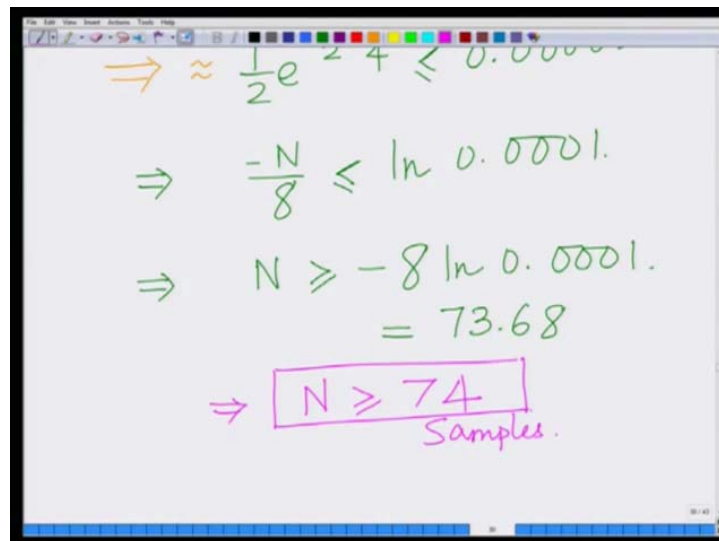 File Edit View Insert Actions Tools Help
⇒ ≈ 1/2 e
⇒ -N/8 ≤ ln 0.0001.
⇒ N ≥ -8 ln 0.0001.
= 73.68
⇒ N ≥ 74
Samples.